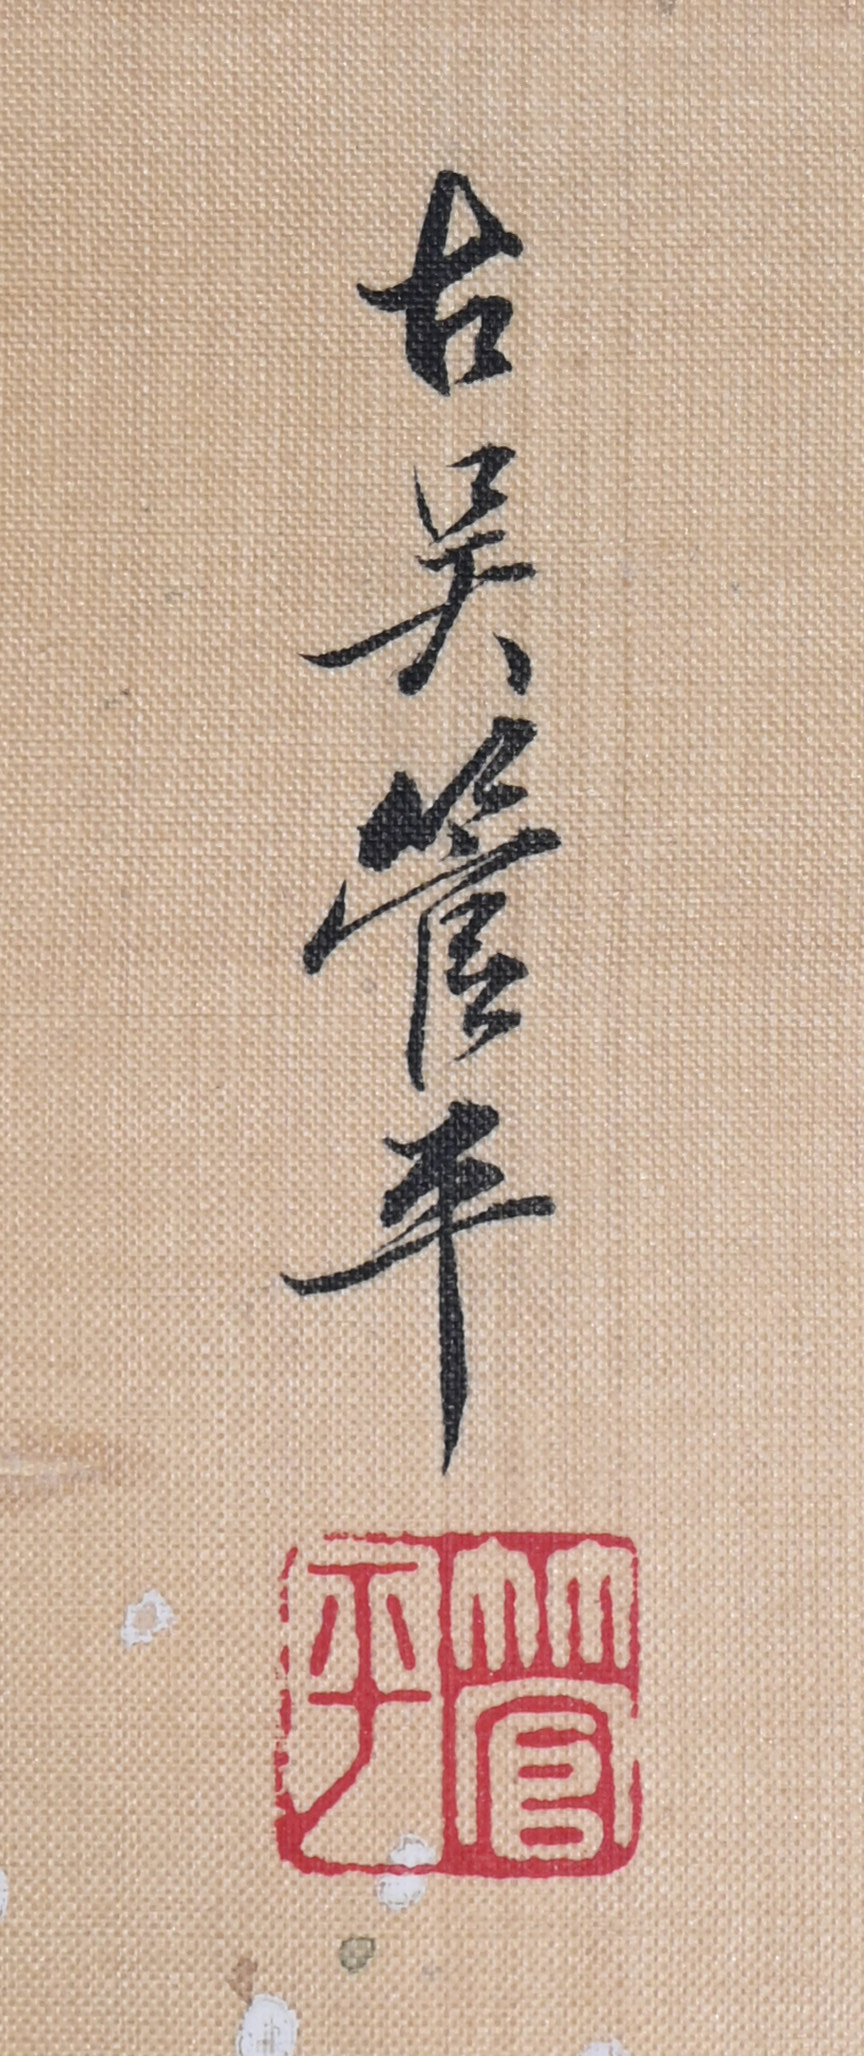 古吴管平
管平